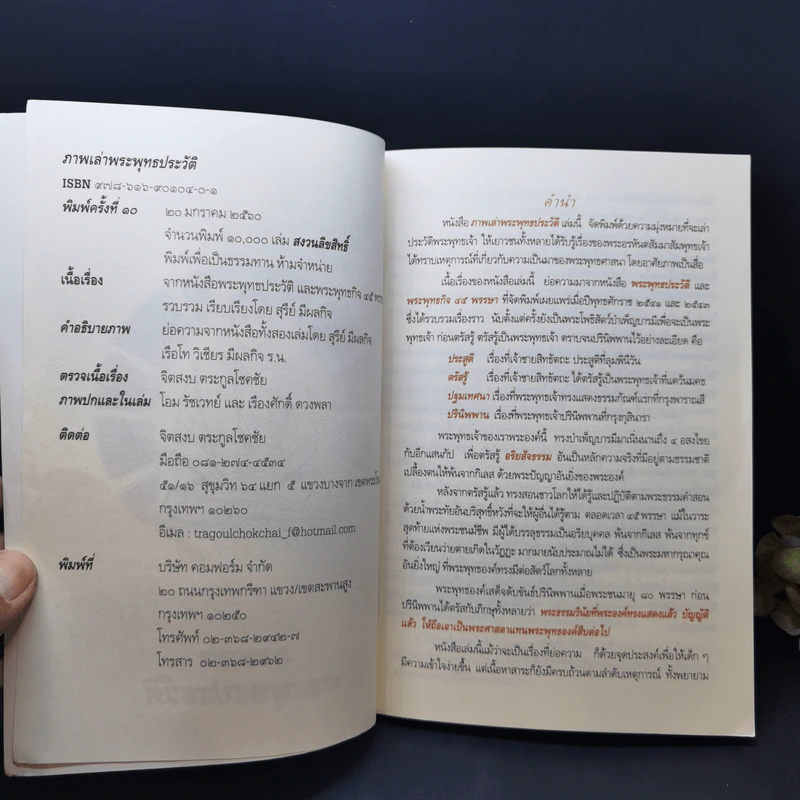 ภาพเล่าพระพุทธประวัติ
ISBN ๙๗๘-๖๑๖-๙๐๑๐๔-๐-๑
พิมพ์ครั้งที่ ๑๐ ๒๐ มกราคม ๒๕๖๐
จำนวนพิมพ์ ๑๐,๐๐๐ เล่ม สงวนลิขสิทธิ์
พิมพ์เพื่อเป็นธรรมทาน ห้ามจำหน่าย
เนื้อเรื่อง จากหนังสือพระพุทธประวัติ และพระพุทธกิจ ๔๕
รวบรวม เรียบเรียงโดย สุรีย์ มีผลกิจ
คำอธิบายภาพ ย่อความจากหนังสือทั้งสองเล่มโดย สุรีย์ มีผลกิจ
เรือโท วิเชียร มีผลกิจ ร.น.
ตรวจเนื้อเรื่อง จิตสงบ ตระกูลโชคชัย
ภาพปกและในเล่ม โอม รัชเวทย์ และ เรืองศักดิ์ ดวงพลา
ติดต่อ จิตสงบ ตระกูลโชคชัย
มือถือ ๐๘๑-๒๗๔-๔๕๓๔
๕๑/๑๖ สุขุมวิท ๖๔ แยก ๕ แขวงบางจาก
กรุงเทพฯ ๑๐๒๖๐
อีเมล : tragoulchokchai_f@hotmail.com
พิมพ์ที่ บริษัท คอมฟอร์ม จำกัด
๒๐ ถนนกรุงเทพกรีฑา แขวง/เขตสะพานสูง
กรุงเทพฯ ๑๐๒๕๐
โทรศัพท์ ๐๒-๓๖๘-๒๙๔๒-๗
โทรสาร ๐๒-๓๖๘-๒๙๖๒
คำนำ
หนังสือ ภาพเล่าพระพุทธประวัติ เล่มนี้ จัดพิมพ์ด้วยความมุ่งหมายที่จะเล่า
ประวัติพระพุทธเจ้า ให้เยาวชนทั้งหลายได้รับรู้เรื่องของพระอรหันตสัมมาสัมพุทธเจ้า
ได้ทราบเหตุการณ์ที่เกี่ยวกับความเป็นมาของพระพุทธศาสนา โดยอาศัยภาพเป็นสื่อ
เนื้อเรื่องของหนังสือเล่มนี้ ย่อความมาจากหนังสือ พระพุทธประวัติ และ
พระพุทธกิจ ๔๕ พรรษา ที่จัดพิมพ์เผยแพร่เมื่อปีพุทธศักราช ๒๕๔๑ และ ๒๕๔๓
ซึ่งได้รวบรวมเรื่องราว นับตั้งแต่ครั้งยังเป็นพระโพธิสัตว์บำเพ็ญบารมีเพื่อจะเป็นพระ
พุทธเจ้า ก่อนตรัสรู้ ตรัสรู้เป็นพระพุทธเจ้า ตราบจนปรินิพพานไว้อย่างละเอียด คือ
ประสูติ เรื่องที่เจ้าชายสิทธัตถะ ประสูติที่ลุมพินีวัน
ตรัสรู้ เรื่องที่เจ้าชายสิทธัตถะ ได้ตรัสรู้เป็นพระพุทธเจ้าที่แคว้นมคธ
ปฐมเทศนา เรื่องที่พระพุทธเจ้าทรงแสดงธรรมกัณฑ์แรกที่กรุงพาราณสี
ปรินิพพาน เรื่องที่พระพุทธเจ้าปรินิพพานที่กรุงกุสินารา
พระพุทธเจ้าของเราพระองค์นี้ ทรงบำเพ็ญบารมีมาเนิ่นนานถึง ๔ อสงไขย
กับอีกแสนกัป เพื่อตรัสรู้ อริยสัจธรรม อันเป็นหลักความจริงที่มีอยู่ตามธรรมชาติ
เปลื้องตนให้พ้นจากกิเลส ด้วยพระปัญญาอันยิ่งของพระองค์
หลังจากตรัสรู้แล้ว ทรงสอนชาวโลกให้ได้รู้และปฏิบัติตามพระธรรมคำสอน
ด้วยน้ำพระทัยอันบริสุทธิ์หวังที่จะให้ผู้อื่นได้รู้ตาม ตลอดเวลา ๔๕ พรรษา แม้ในวาระ
สุดท้ายแห่งพระชนม์ชีพ มีผู้ได้บรรลุธรรมเป็นอริยบุคคล พ้นจากกิเลส พ้นจากทุกข์
ที่ต้องเวียนว่ายตายเกิดในวัฏฏะ มากมายนับประมาณไม่ได้ ซึ่งเป็นพระมหากรุณาคุณ
อันยิ่งใหญ่ ที่พระพุทธองค์ทรงมีต่อสัตว์โลกทั้งหลาย
พระพุทธองค์เสด็จดับขันธ์ปรินิพพานเมื่อพระชนมายุ ๘๐ พรรษา ก่อน
ปรินิพพานได้ตรัสกับภิกษุทั้งหลายว่า พระธรรมวินัยที่พระองค์ทรงแสดงแล้ว บัญญัติ
แล้ว ให้ถือเอาเป็นพระศาสดาแทนพระพุทธองค์สืบต่อไป
หนังสือเล่มนี้แม้ว่าจะเป็นเรื่องที่ย่อความ ก็ด้วยจุดประสงค์เพื่อให้เด็ก ๆ
มีความเข้าใจง่ายขึ้น แต่เนื้อหาสาระก็ยังมีครบถ้วนตามลำดับเหตุการณ์ ทั้งพยายาม